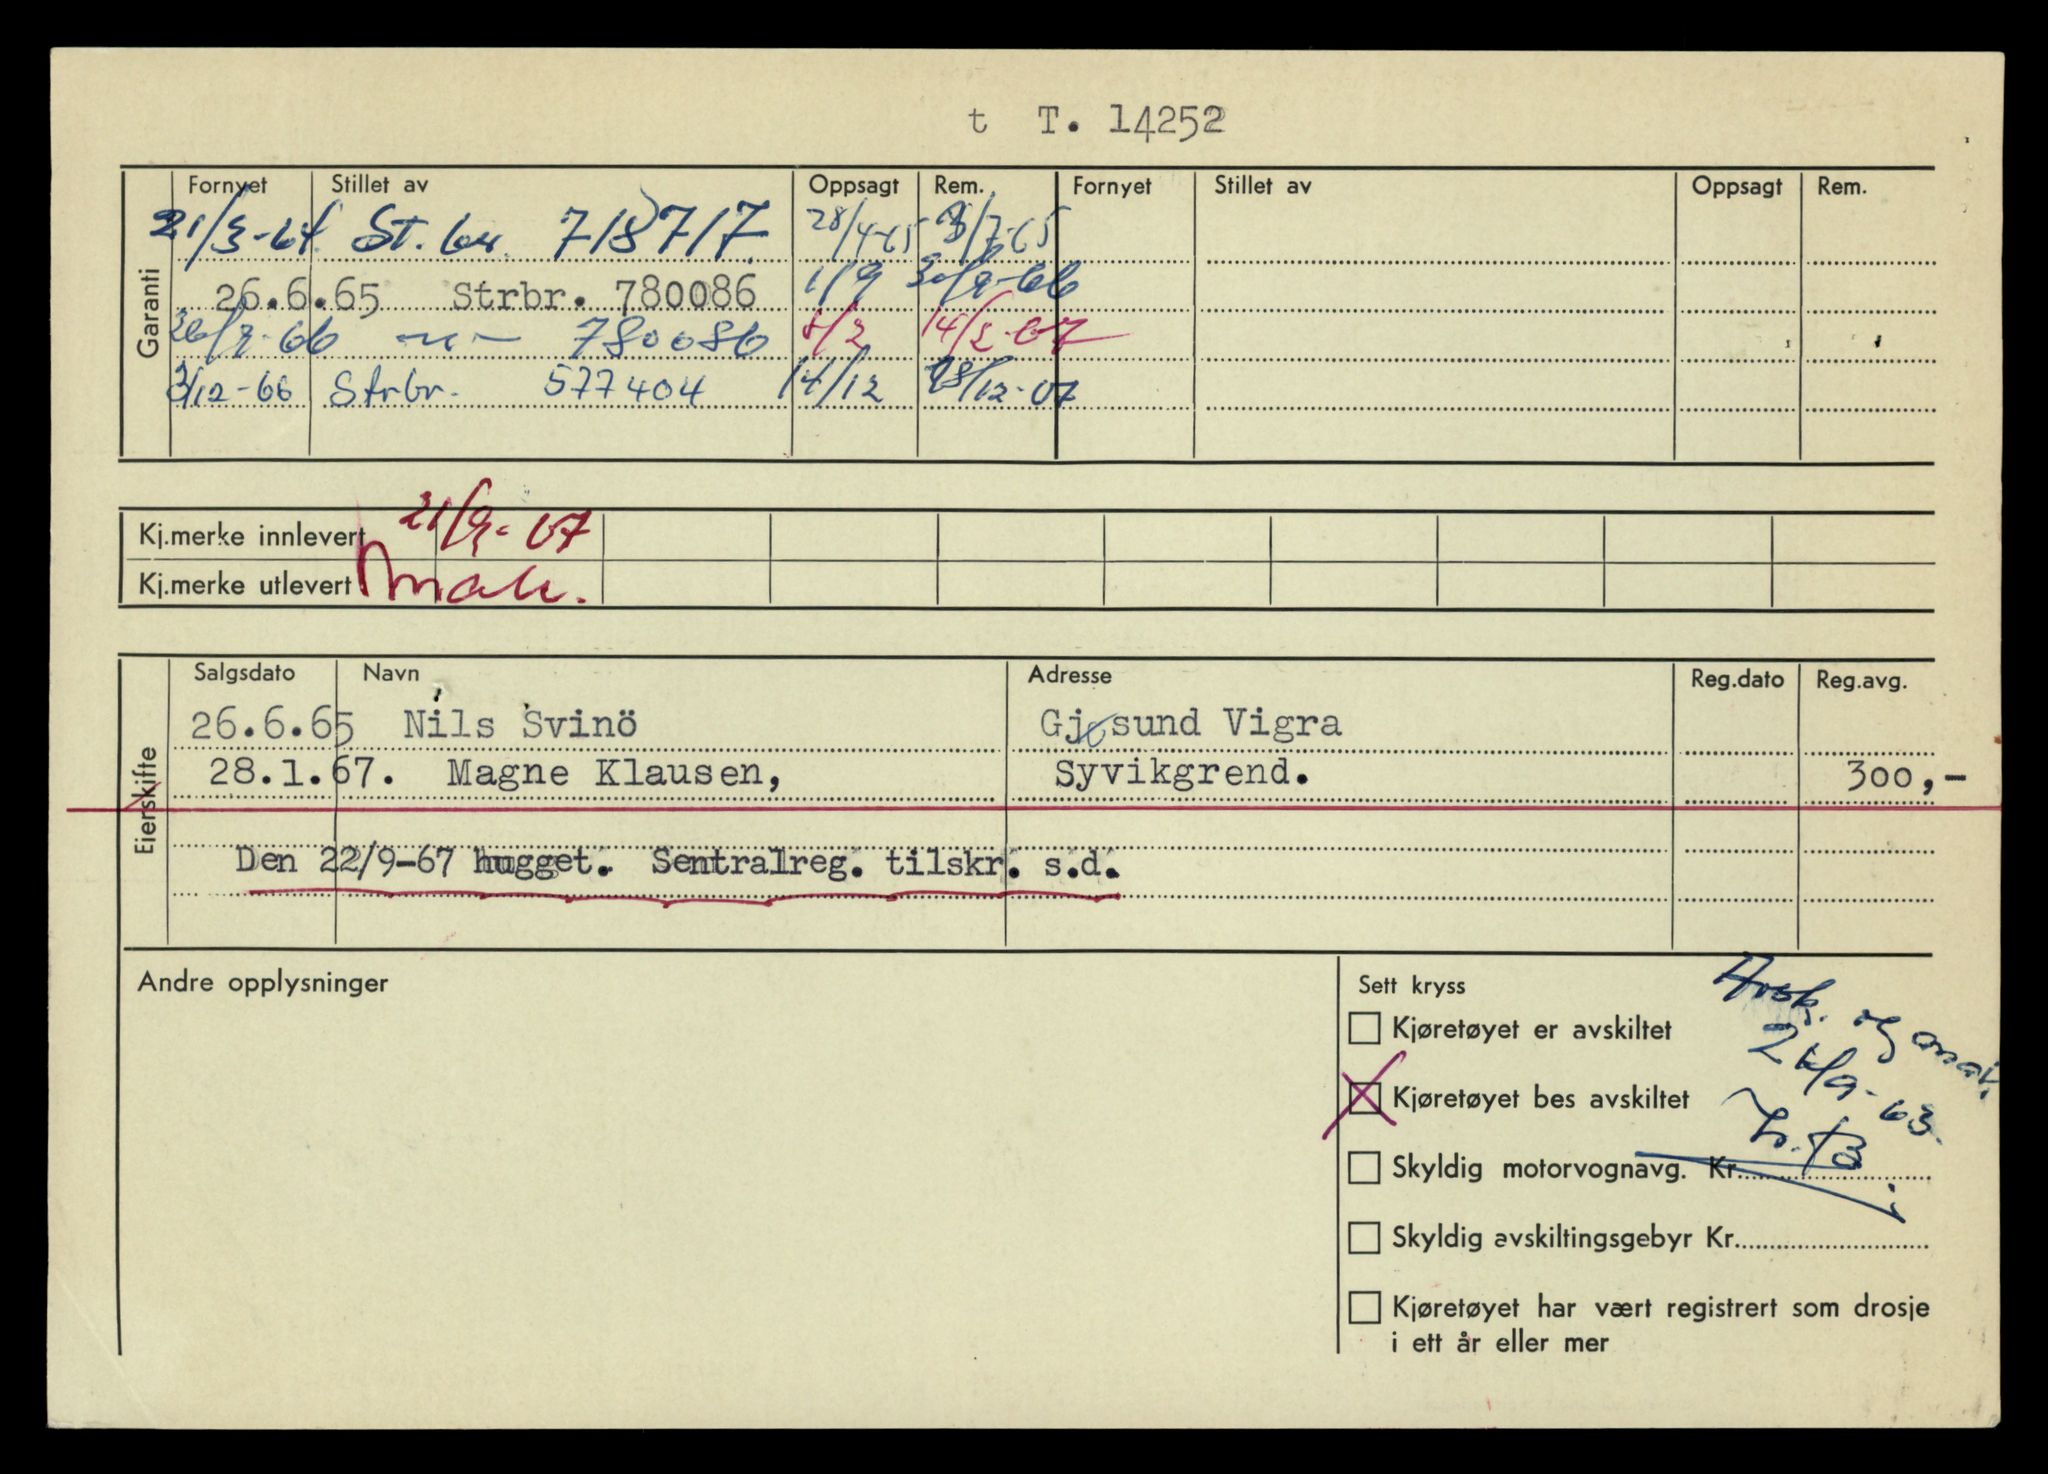 t T. 14252
Garanti
Fornyet Stillet av Oppsagt Rem. Fornyet Stillet av Oppsagt Rem.
21/3-64 St.br. 718717 28/4-65 /7-65
26.6.65 Strbr. 780086 1/9 30/9-66
780086 14/2-67
/12-66 Strbr. 577404 14/12 28/12-67
Kj.merke innlevert 21/9-67
Kj.merke utlevert
Eierskifte
Salgsdato Navn Adresse Reg.dato Reg.avg.
26.6.65 Nils Svinö Gjøsund Vigra
28.1.67. Magne Klausen, Syvikgrend. 300,-
Den 22/9-67 hugget. Sentralreg. tilskr. s.d.
Andre opplysninger
Sett kryss
Kjøretøyet er avskiltet
Kjøretøyet bes avskiltet
Skyldig motorvognavg. Kr.
Skyldig avskiltingsgebyr Kr.
Kjøretøyet har vært registrert som drosje
i ett år eller mer
Avsk. og